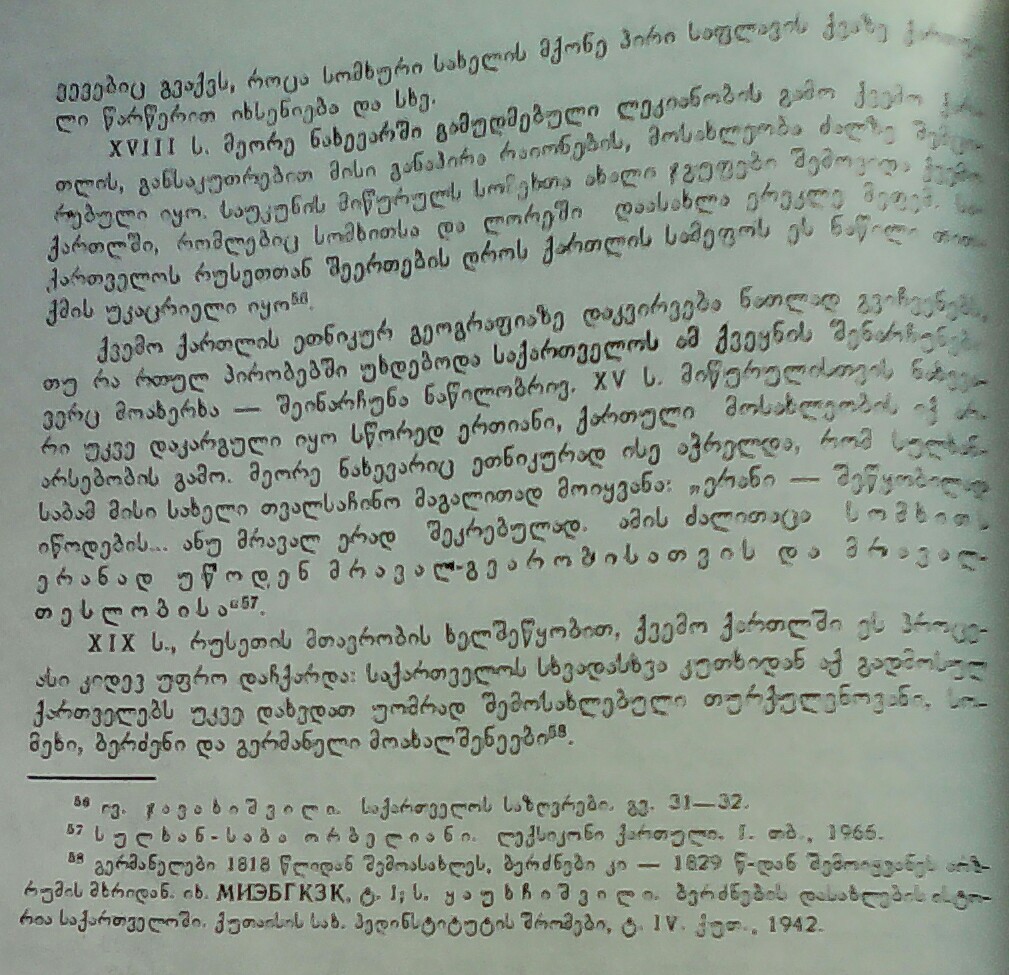 ვევებიც გვაქვს, როცა სომხური სახელის მქონე პირი საფლავის ქვაზე
ლი წარწერით იხსენიება და სხვ.
XVIII ს. მეორე ნახევარში გამუდმებული ლეკიანობის გამო ქვემო ქარ-
თლის, განსაკუთრებით მისი განაპირა რაიონების, მოსახლეობა ძალზე
რებული იყო. საუკუნის მიწურულს სომეხთა ახალი ჯგუფები შემოვიდა ქვემო
ქართლში, რომლებიც სომხითსა და ლორეში დაასახლა ერეკლე მეფემ.
ქართველოს რუსეთთან შეერთების დროს ქართლის სამეფოს ეს ნაწილი თით-
ქმის უკაცრიელი იყო⁵⁶.
ქვემო ქართლის ეთნიკურ გეოგრაფიაზე დაკვირვება ნათლად გვიჩვენებს,
თუ რა რთულ პირობებში უხდებოდა საქართველოს ამ ქვეყნის შენარჩუნება.
ვერც მოახერხა — შეინარჩუნა ნაწილობრივ. XV ს. მიწურულისთვის ნახევა-
რი უკვე დაკარგული იყო სწორედ ერთიანი, ქართული მოსახლეობის იქ არ-
არსებობის გამო. მეორე ნახევარიც ეთნიკურად ისე აჭრელდა, რომ სულხან-
საბამ მისი სახელი თვალსაჩინო მაგალითად მოიყვანა: „ერანი — შეწყობილად
იწოდების... ანუ მრავალ ერად შეკრებულად. ამის ძალითაცა ს ო მ ხ ი თ ს
ე რ ა ნ ა დ უ წ ო დ ე ნ მ რ ა ვ ა ლ-გ ვ ა რ ო ბ ი ს ა თ ვ ი ს დ ა მ რ ა ვ ა ლ-
თ ე ს ლ ო ბ ი ს ა“⁵⁷.
XIX ს., რუსეთის მთავრობის ხელშეწყობით, ქვემო ქართლში ეს პროცე-
ასი კიდევ უფრო დაჩქარდა: საქართველოს სხვადასხვა კუთხიდან აქ გადმოსულ
ქართველებს უკვე დახვდათ უომრად შემოსახლებული თურქულენოვანი, სო-
მეხი, ბერძენი და გერმანელი მოახალშენეები⁵⁸.
⁵⁶ ივ. ჯ ა ვ ა ხ ი შ ვ ი ლ ი. საქართველოს საზღვრები. გვ. 31—32.
⁵⁷ ს უ ლ ხ ა ნ - ს ა ბ ა ო რ ბ ე ლ ი ა ნ ი. ლექსიკონი ქართული. I. თბ., 1966.
⁵⁸ გერმანელები 1818 წლიდან შემოსახლეს, ბერძნები კი — 1829 წ-დან შემოიყვანეს არზ-
რუმის მხრიდან. იხ. МИЭБГКЗК, ტ. I; ს. ყ ა უ ხ ჩ ი შ ვ ი ლ ი. ბერძნების დასახლების ისტო-
რია საქართველოში. ქუთაისის სახ. პედინსტიტუტის შრომები, ტ. IV. ქუთ., 1942.